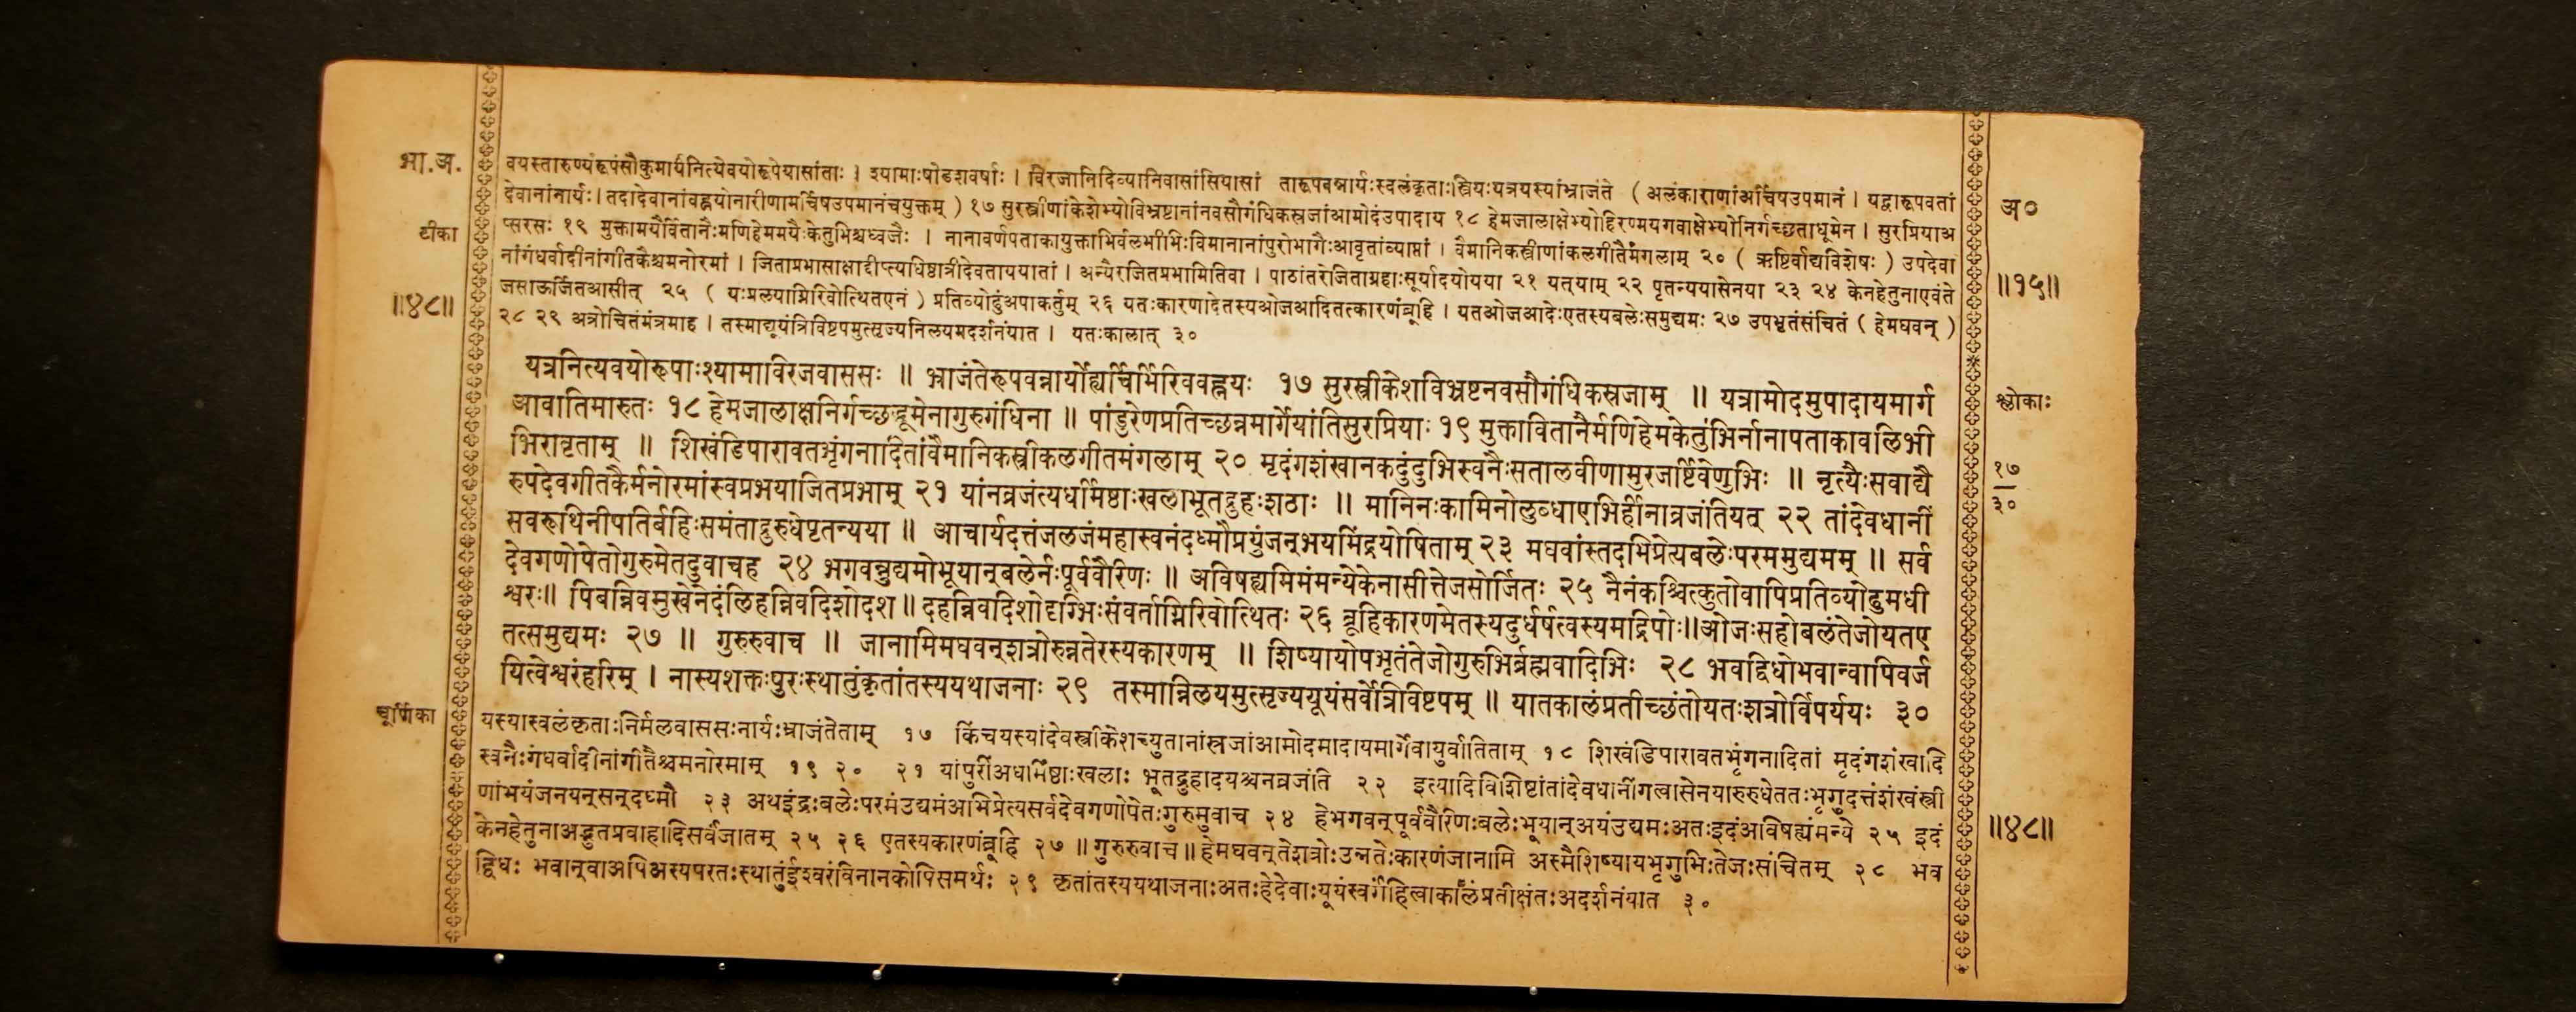 भा.अ.
टीका
॥४८॥
चूर्णिका
वयस्तारुण्यंरूपंसौकुमार्यंनित्येवयोरूपेयासांताः । श्यामाःषोडशवर्षाः । विरजानिदिव्यानिवासांसियासां तारूपवन्नार्यःस्वलंकृताःस्त्रियःयत्रयस्यांभ्राजंते (अलंकाराणांअर्चिषउपमानं । यद्वारूपवतां
देवानांनार्यः। तदादेवानांवह्नयोनारीणामर्चिषउपमानंचयुक्तम् ) १७ सुरस्त्रीणांकेशेभ्योविभ्रष्टानांनवसौगंधिकस्रजांआमोदंउपादाय १८ हेमजालाक्षेभ्योहिरण्मयगवाक्षेभ्योनिर्गच्छताधूमेन । सुरप्रियाअ
प्सरसः १९ मुक्तामयैर्वितानैःमणिहेममयैःकेतुभिश्चध्वजैः । नानावर्णपताकायुक्ताभिर्वलभीभिःविमानानांपुरोभागैःआवृतांव्याप्तां । वैमानिकस्त्रीणांकलगीतैर्मंगलाम् २० ( ऋष्टिर्वाद्यविशेषः ) उपदेवा
नांगंधर्वादीनांगीतकैश्चमनोरमां । जिताप्रभासाक्षाद्दीप्त्यधिष्ठात्रीदेवताययातां । अन्यैरजितप्रभामितिवा । पाठांतरेजिताग्रहाःसूर्यादयोयया २१ यत्याम् २२ पृतन्ययासेनया २३ २४ केनहेतुनाएवंते
जसाऊर्जितआसीत् २५ ( यःप्रलयाग्निरिवोत्थितएनं ) प्रतिव्योढुंअपाकर्तुम् २६ यतःकारणादेतस्यओजआदितत्कारणंब्रूहि । यतओजआदेःएतस्यबलेःसमुद्यमः २७ उपभृतंसंचितं ( हेमघवन् )
२८ २९ अत्रोचितंमंत्रमाह । तस्माद्यूयंत्रिविष्टपमुत्सृज्यनिलयमदर्शनंयात । यतःकालात् ३०
यत्रनित्यवयोरूपाःश्यामाविरजवाससः ॥ भ्राजंतेरूपवन्नार्योह्यर्चिर्भिरिववह्नयः १७ सुरस्त्रीकेशविभ्रष्टनवसौगंधिकस्रजाम् ॥ यत्रामोदमुपादायमार्ग
आवातिमारुतः १८ हेमजालाक्षनिर्गच्छद्धूमेनागुरुगंधिना ॥ पांडुरेणप्रतिच्छन्नमार्गेयांतिसुरप्रियाः १९ मुक्तावितानैर्मणिहेमकेतुभिर्नानापताकावलिभी
भिरावृताम् ॥ शिखंडिपारावतभृंगनादितांवैमानिकस्त्रीकलगीतमंगलाम् २० मृदंगशंखानकदुंदुभिस्वनैःसतालवीणामुरजर्ष्टिवेणुभिः ॥ नृत्यैःसवाद्यै
रुपदेवगीतकैर्मनोरमांस्वप्रभयाजितप्रभाम् २१ यांनव्रजंत्यधर्मिष्ठाःखलाभूतद्रुहःशठाः ॥ मानिनःकामिनोलुब्धाएभिर्हीनाव्रजंतियत् २२ तांदेवधानीं
सवरूथिनीपतिर्बहिःसमंताद्रुरुधेपृतन्यया ॥ आचार्यदत्तंजलजंमहास्वनंदध्मौप्रयुंजन्भयमिंद्रयोषिताम् २३ मघवांस्तदभिप्रेत्यबलेःपरममुद्यमम् ॥ सर्व
देवगणोपेतोगुरुमेतदुवाचह २४ भगवन्नुद्यमोभूयान्बलेर्नःपूर्ववैरिणः ॥ अविषह्यमिमंमन्येकेनासीत्तेजसोर्जितः २५ नैनंकश्चित्कुतोवापिप्रतिव्योढुमधी
श्वरः॥ पिबन्निवमुखेनेदंलिहन्निवदिशोदश॥ दहन्निवदिशोदृग्भिःसंवर्ताग्निरिवोत्थितः २६ ब्रूहिकारणमेतस्यदुर्धर्षत्वस्यमद्रिपोः॥ओजःसहोबलंतेजोयतए
तत्समुद्यमः २७ ॥ गुरुरुवाच ॥ जानामिमघवन्शत्रोरुन्नतेरस्यकारणम् ॥ शिष्यायोपभृतंतेजोगुरुभिर्ब्रह्मवादिभिः २८ भवद्विधोभवान्वापिवर्ज
यित्वेश्वरंहरिम् । नास्यशक्तःपुरःस्थातुंकृतांतस्ययथाजनाः २९ तस्मान्निलयमुत्सृज्ययूयंसर्वेत्रिविष्टपम् ॥ यातकालंप्रतीच्छंतोयतःशत्रोर्विपर्ययः ३०
यस्यास्वलंकृताःनिर्मलवाससःनार्यःभ्राजंतेताम् १७ किंचयस्यांदेवस्त्रीकेशच्युतानांस्रजांआमोदमादायमार्गेवायुर्वातिताम् १८ शिखंडिपारावतभृंगनादितां मृदंगशंखादि
स्वनैःगंधर्वादीनांगीतैश्चमनोरमाम् १९ २० २१ यांपुरींअधर्मिष्ठाःखलाः भूतद्रुहादयश्चनव्रजंति २२ इत्यादिविशिष्टांतांदेवधानींगत्वासेनयारुरुधेततःभृगुदत्तंशंखंस्त्री
णांभयंजनयन्सन्दध्मौ २३ अथइंद्रःबलेःपरमंउद्यमंअभिप्रेत्यसर्वदेवगणोपेतःगुरुमुवाच २४ हेभगवन्पूर्ववैरिणःबलेःभूयान्अयंउद्यमःअतःइदंअविषह्यंमन्ये २५ इदं
केनहेतुनाअद्भुतप्रवाहादिसर्वंजातम् २५ २६ एतस्यकारणंब्रूहि २७ ॥ गुरुरुवाच ॥ हेमघवन्तेशत्रोःउन्नतेःकारणंजानामि अस्मैशिष्यायभृगुभिःतेजःसंचितम् २८ भव
द्विधः भवान्वाअपिअस्यपरतःस्थातुंईश्वरंविनानकोपिसमर्थः २९ कृतांतस्ययथाजनाःअतःहेदेवाःयूयंस्वर्गंहित्वाकालंप्रतीक्षंतःअदर्शनंयात ३०
अ०
॥१५॥
श्लोकाः
१७
३०
॥४८॥